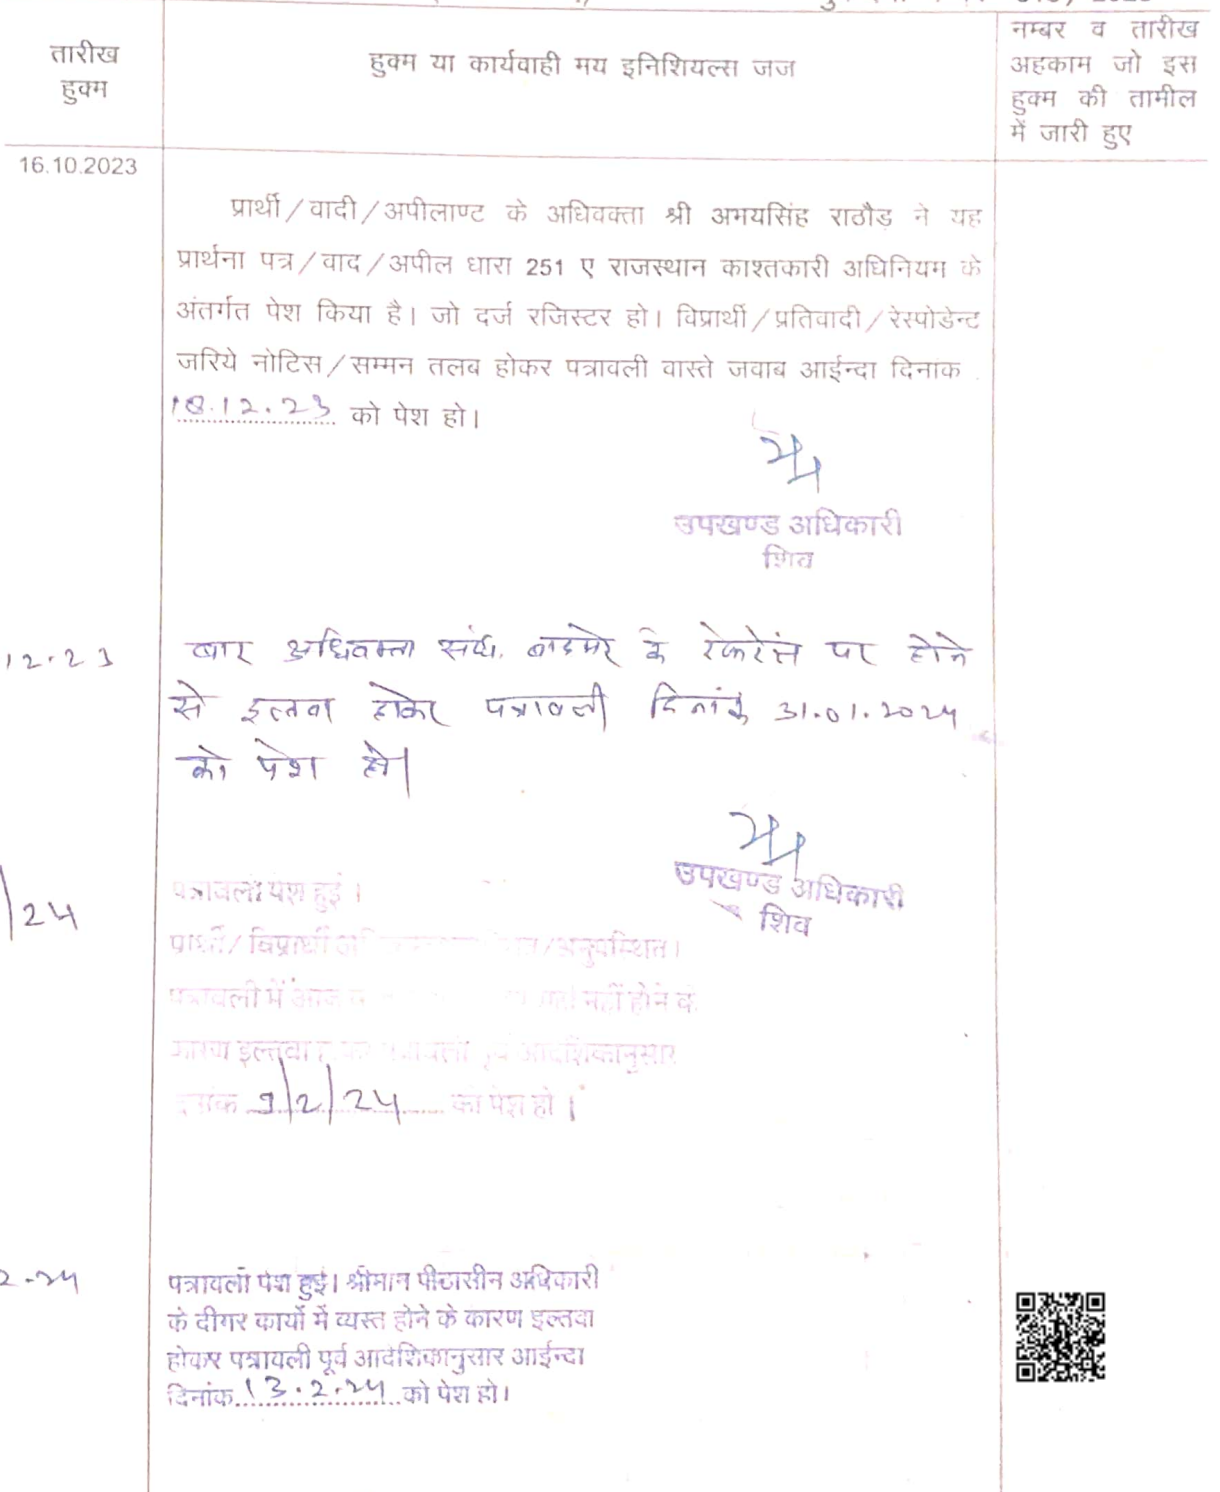 तारीख
हुक्म
हुक्म या कार्यवाही मय इनिशियल्स जज
नम्बर व तारीख
अहकाम जो इस
हुक्म की तामील
में जारी हुए
16.10.2023
प्रार्थी/वादी/अपीलाण्ट के अधिवक्ता श्री अभयसिंह राठौड़ ने यह
प्रार्थना पत्र/वाद/अपील धारा 251 ए राजस्थान काश्तकारी अधिनियम के
अंतर्गत पेश किया है। जो दर्ज रजिस्टर हो। विप्रार्थी/प्रतिवादी/रेस्पोडेन्ट
जरिये नोटिस/सम्मन तलब होकर पत्रावली वास्ते जवाब आईन्दा दिनांक
18.12.23 को पेश हो।
उपखण्ड अधिकारी
शिव
12.23
बार अधिवक्ता संघ, बाडमेर के पर होने
से इल्तवा होकर पत्रावली दिनांक 31.01.2024
को पेश हो।
उपखण्ड अधिकारी
शिव
/24
पत्रावली पेश हुई ।
प्रार्थी/ विप्रार्थी /अनुपस्थित।
पत्रावली में आज नहीं होने के
कारण इल्तवा पत्रावली पूर्व आदेशिकानुसार
दिनांक 9/2/24 को पेश हो ।
2.24
पत्रावली पेश हुई। श्रीमान पीठासीन अधिकारी
के दीगर कार्यो में व्यस्त होने के कारण इल्तवा
होकर पत्रावली पूर्व आदेशिकानुसार आईन्दा
दिनांक 13.2.24 को पेश हो।